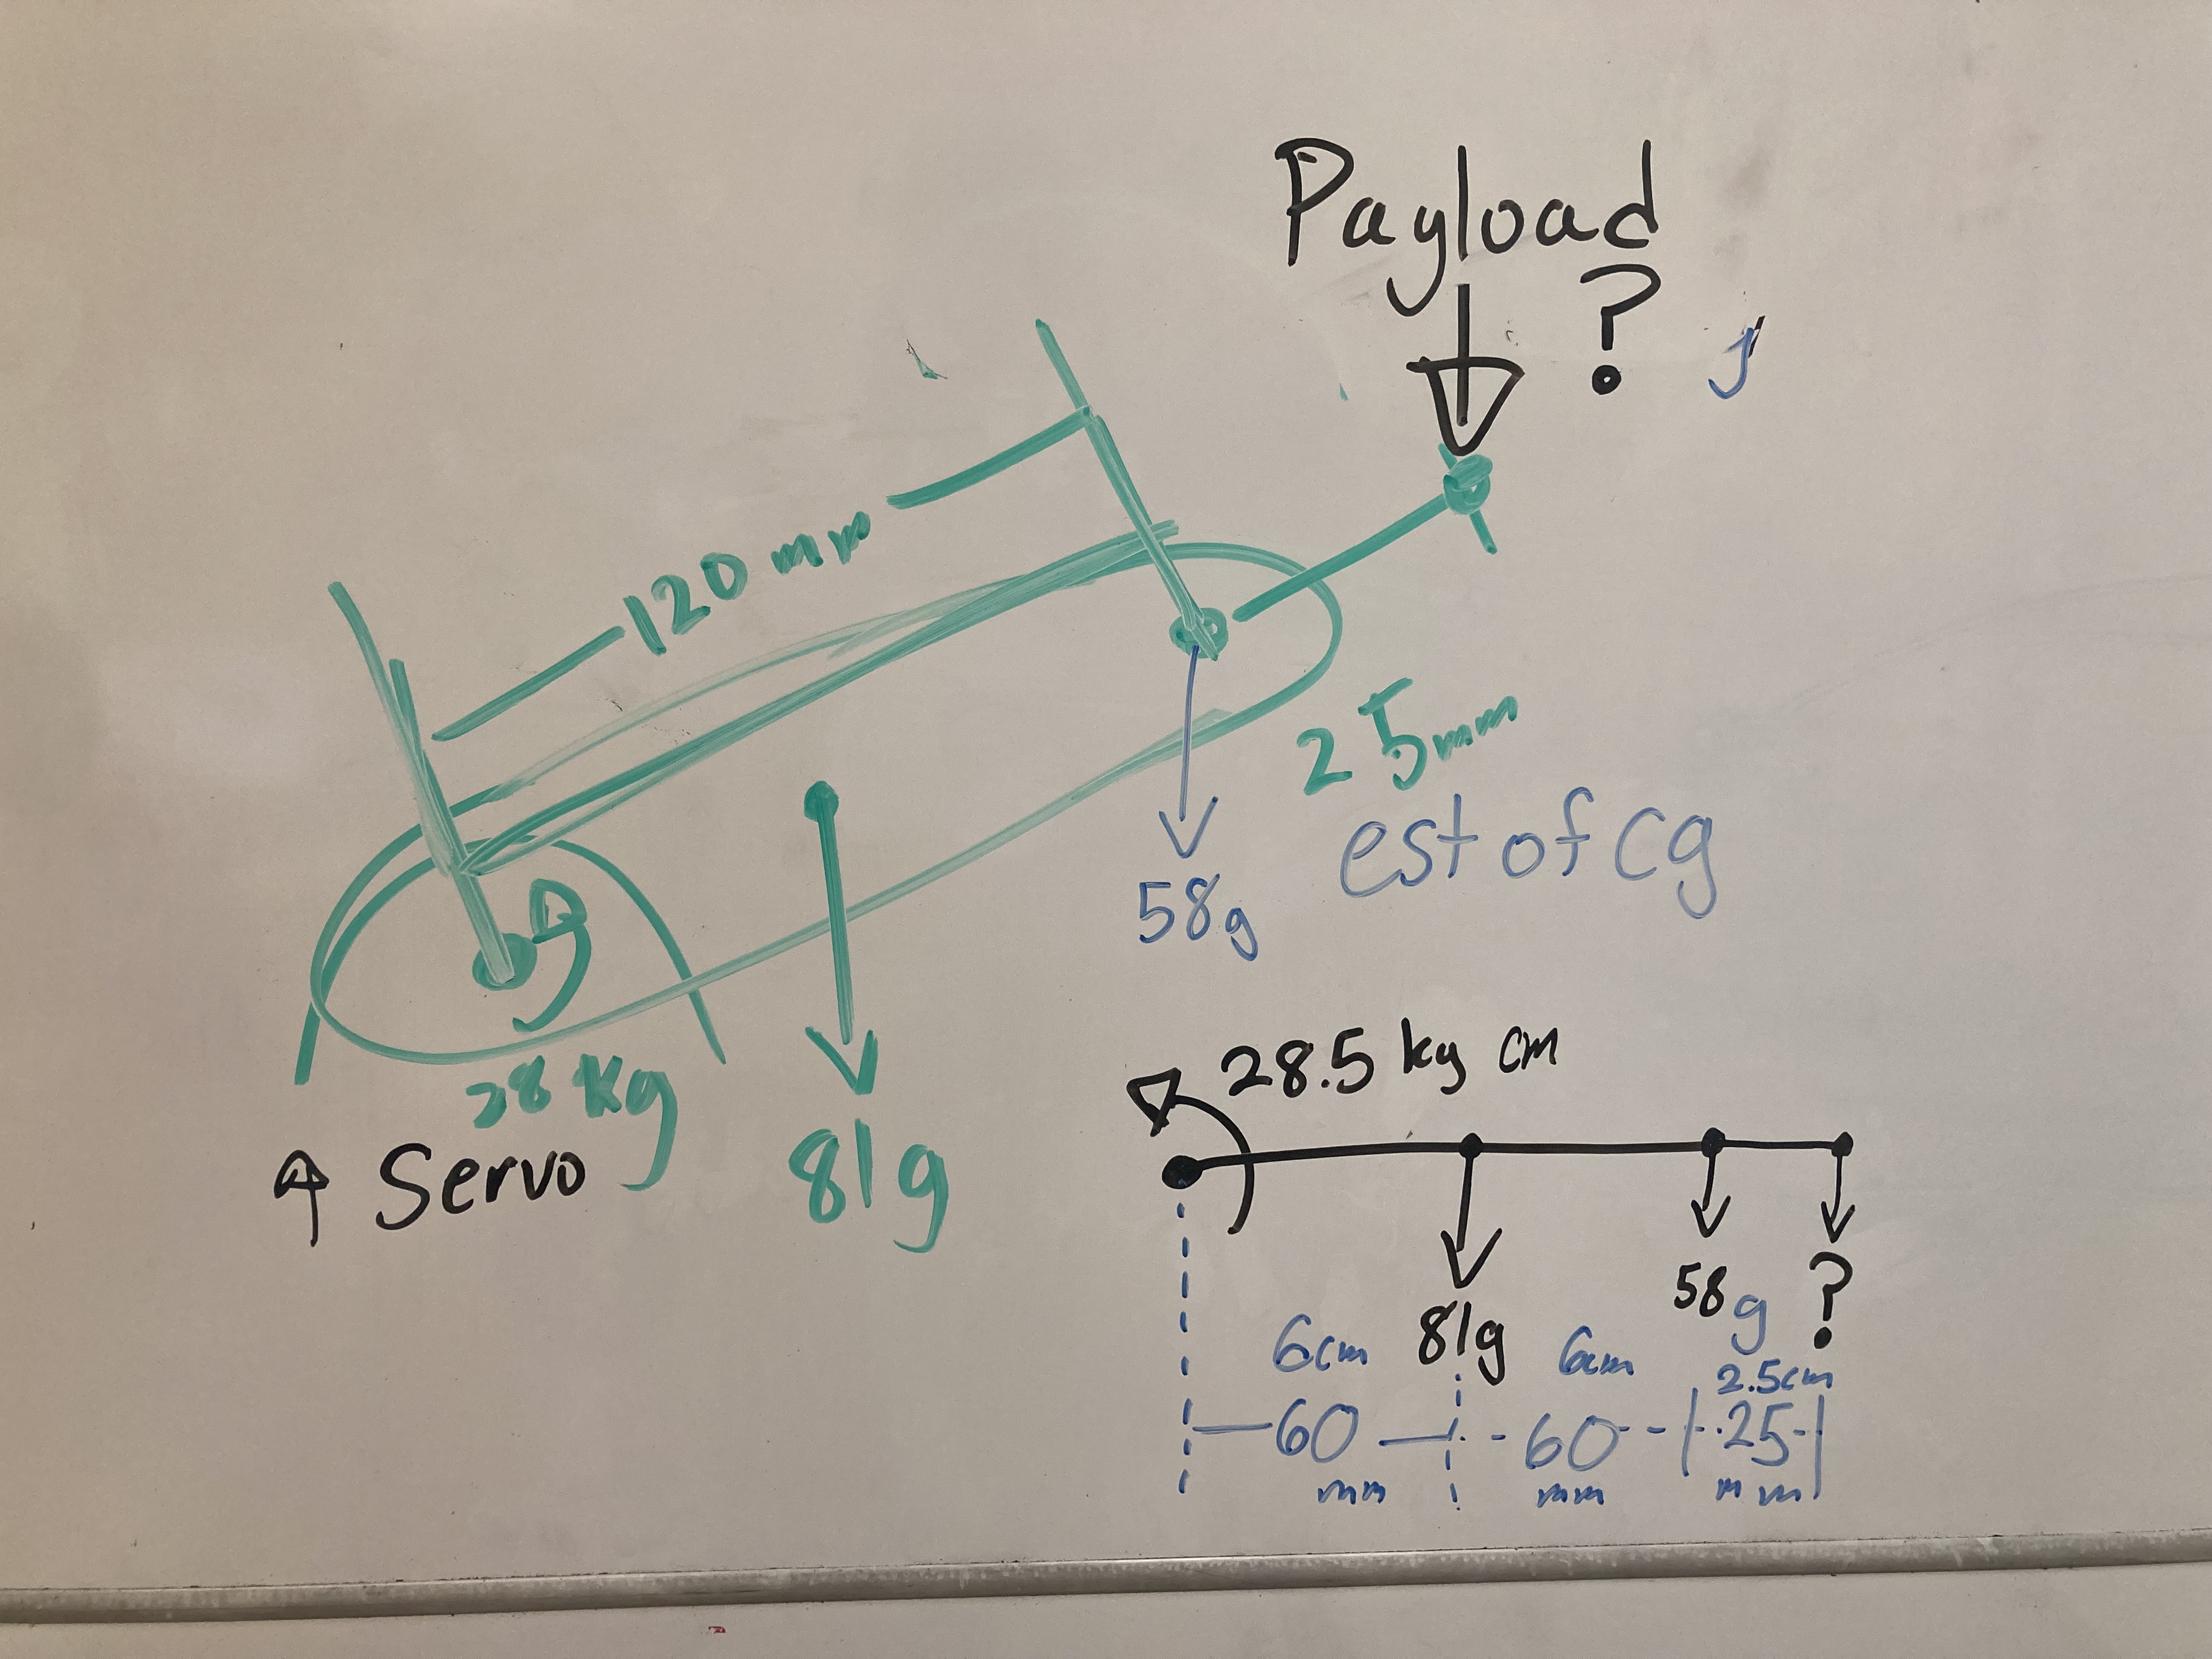 Payload
?
120 mm
25mm
est of cg
58g
28 Kg
↑ Servo
81g
28.5 kg cm
58g
?
81g
6cm
6cm
2.5cm
60
mm
60
mm
25
mm